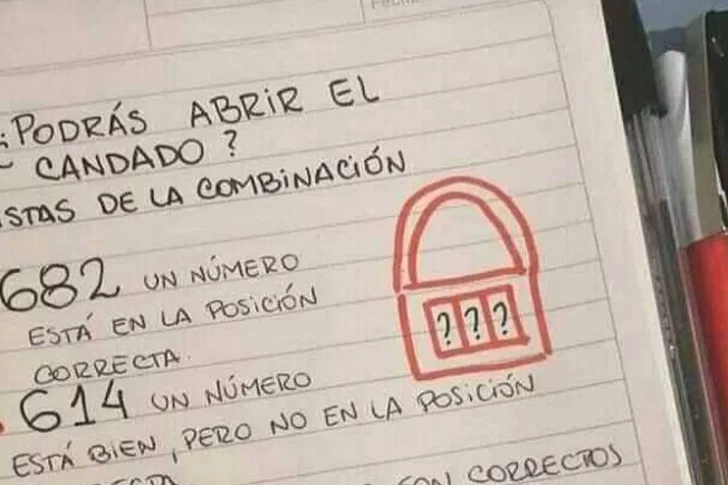 ¿PODRÁS ABRIR EL
CANDADO?
DE LA COMBINACIÓN
682 UN NÚMERO
ESTÁ EN LA POSICIÓN
CORRECTA.
614 UN NÚMERO
ESTÁ BIEN, PERO NO EN LA POSICIÓN
CORRECTOS
???